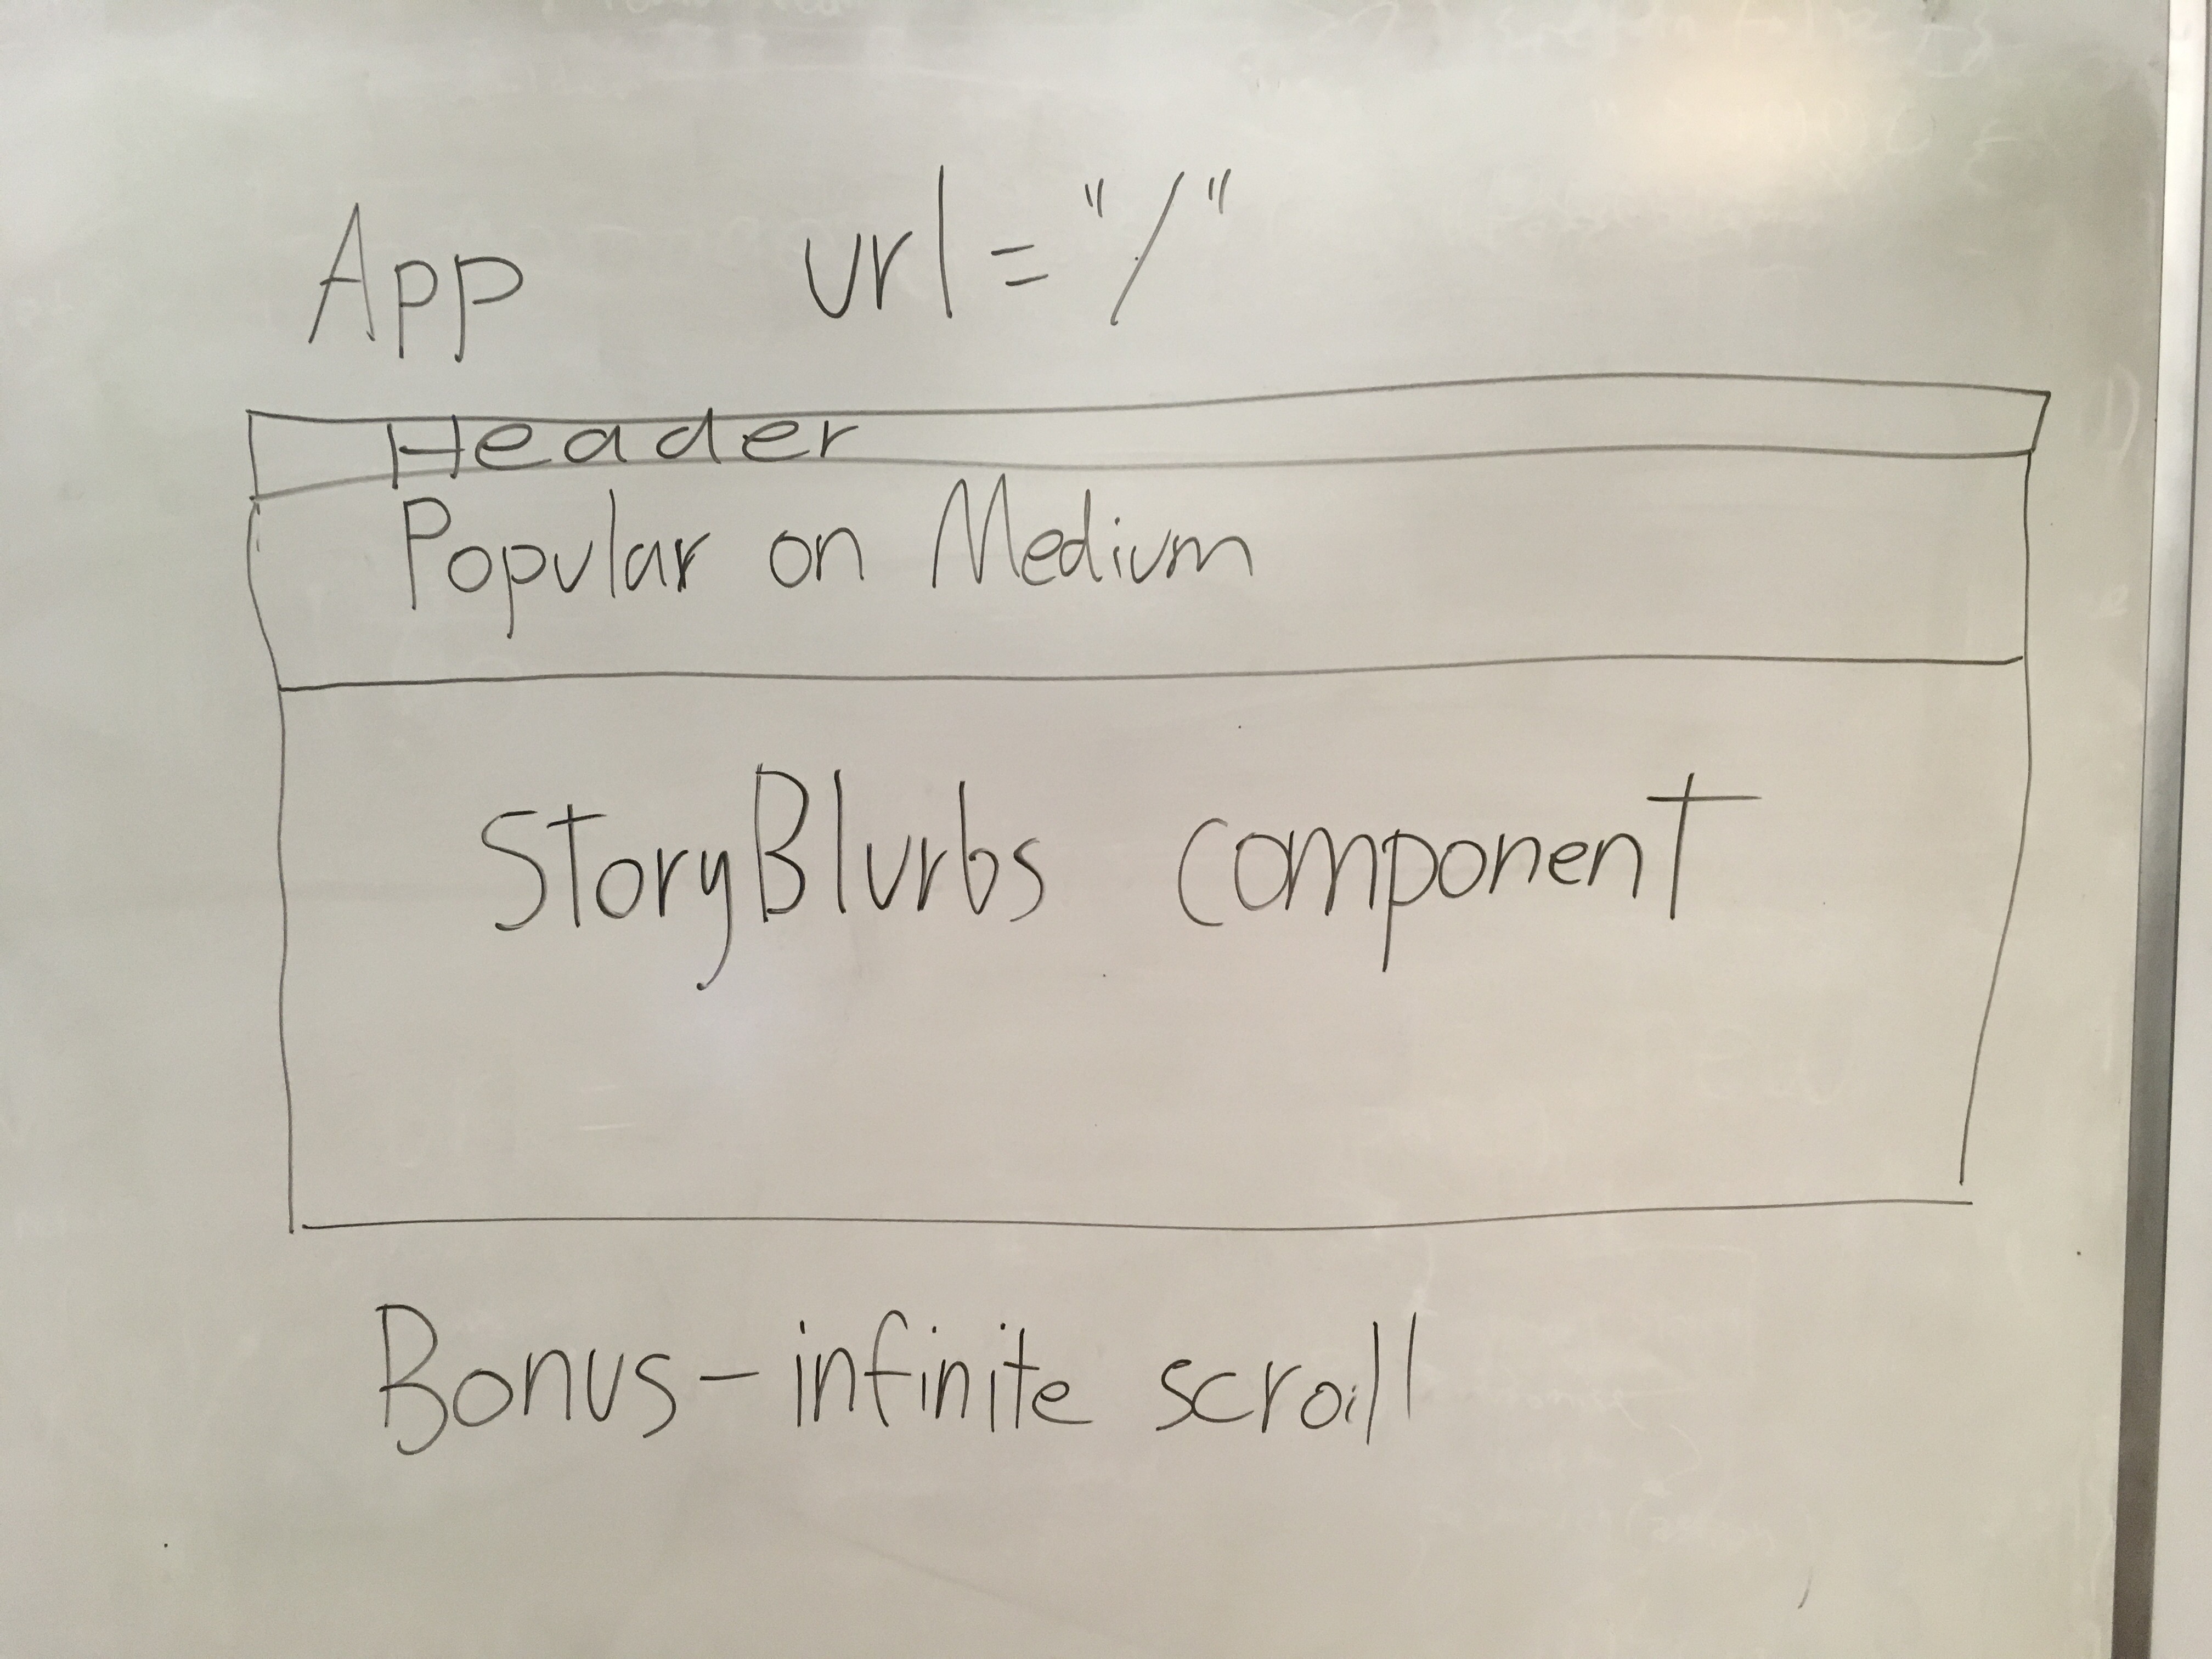 App url = "/"
Header
Popular on Medium
StoryBlurbs component
Bonus - infinite scroll